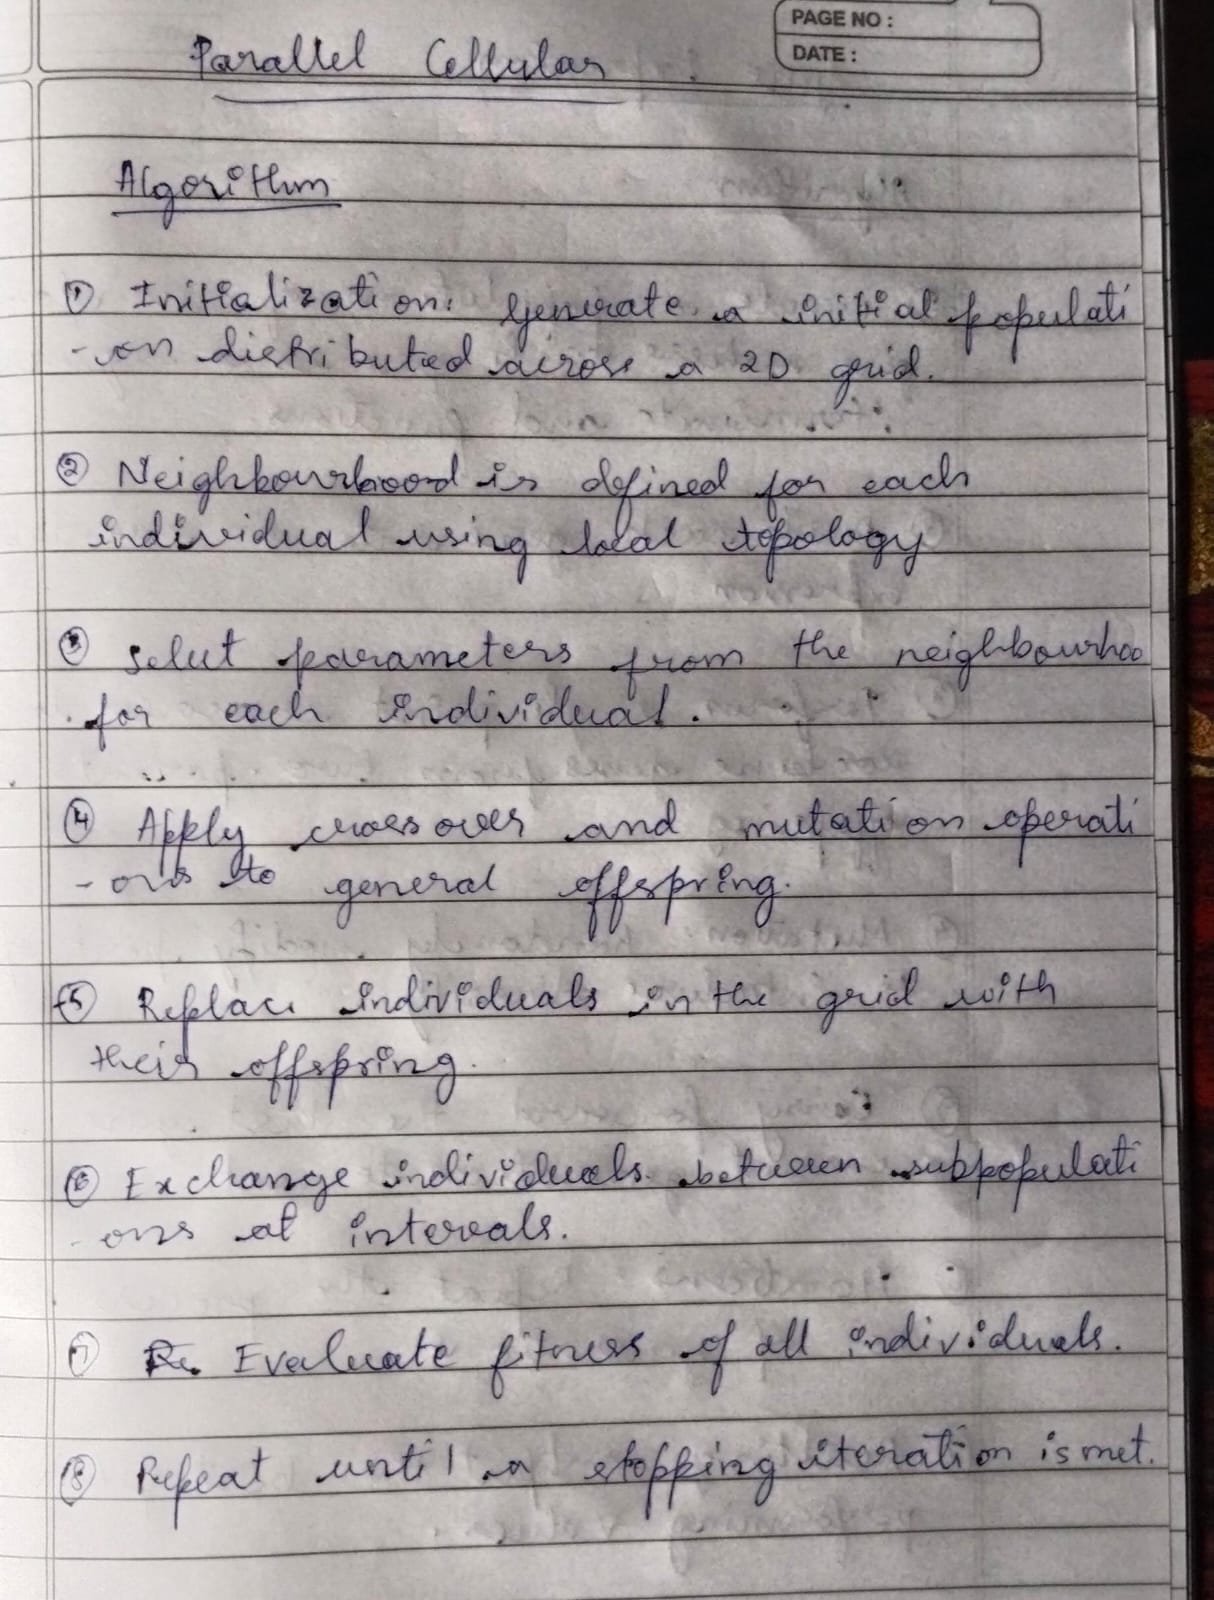 PAGE NO :
DATE :
Parallel Cellular
Algorithm
① Initialization: generate a initial populati
-on distributed across a 2D grid.
② Neighbourhood is defined for each
individual using local topology
③ select parameters from the neighbourhoo
for each individual.
④ Apply crossover and mutation operati
-ons to general offspring.
⑤ Replace individuals in the grid with
their offspring.
⑥ Exchange individuals between subpopulati
-ons at intervals.
⑦ Evaluate fitness of all individuals.
⑧ Repeat until a stopping iteration is met.